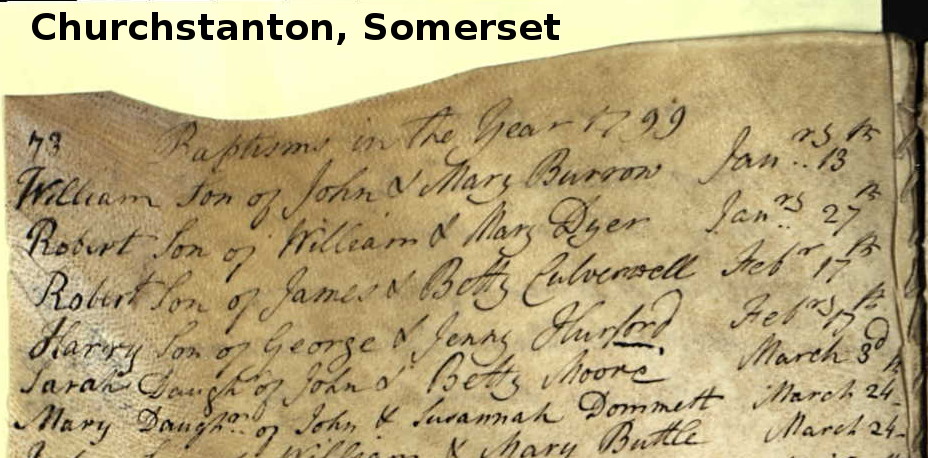 Churchstanton, Somerset
73 Baptisms in the Year 1799
William Son of John & Mary Burrow Janry 13th
Robert Son of William & Mary Dyer Janry 27th
Robert Son of James & Betty Culverwell Febr 17th
Harry Son of George & Jenny Hurford Febry 17th
Sarah Daugh of John & Betty Moore March 3d
Mary Daughr of John & Susannah Dommett March 24th
William & Mary Buttle March 24